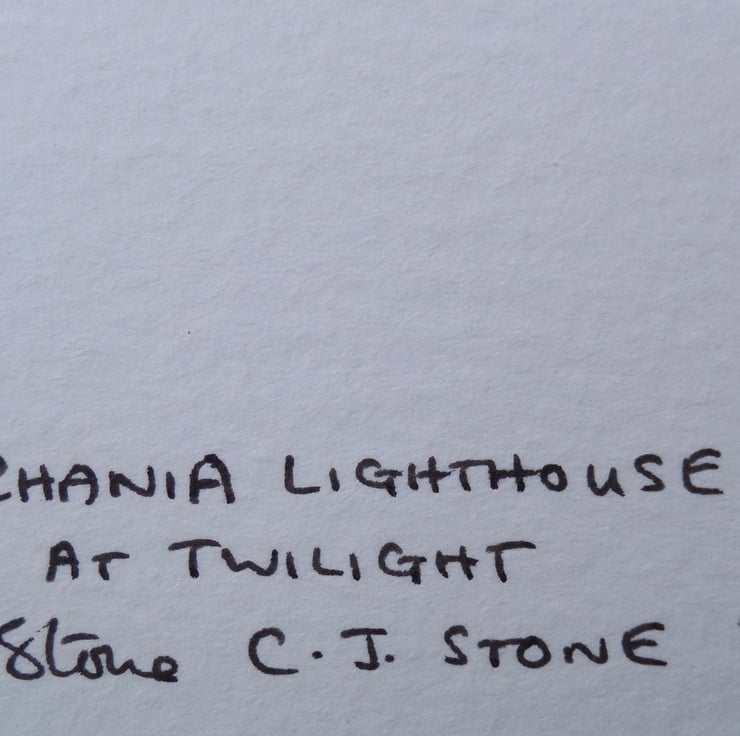 CHANIA LIGHTHOUSE
AT TWILIGHT
Stone C.J. STONE